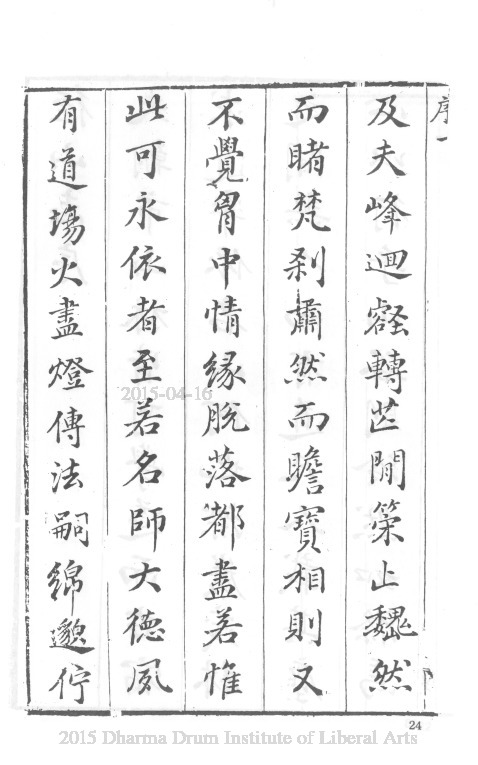 序一
及夫峰迴壑轉芷閒策止巍然
而睹梵剎肅然而瞻寶相則又
不覺胷中情緣脫落都盡若惟
此可永依者至若名師大德夙
有道場火盡燈傳法嗣綿邈佇
2015-04-16
24
2015 Dharma Drum Institute of Liberal Arts